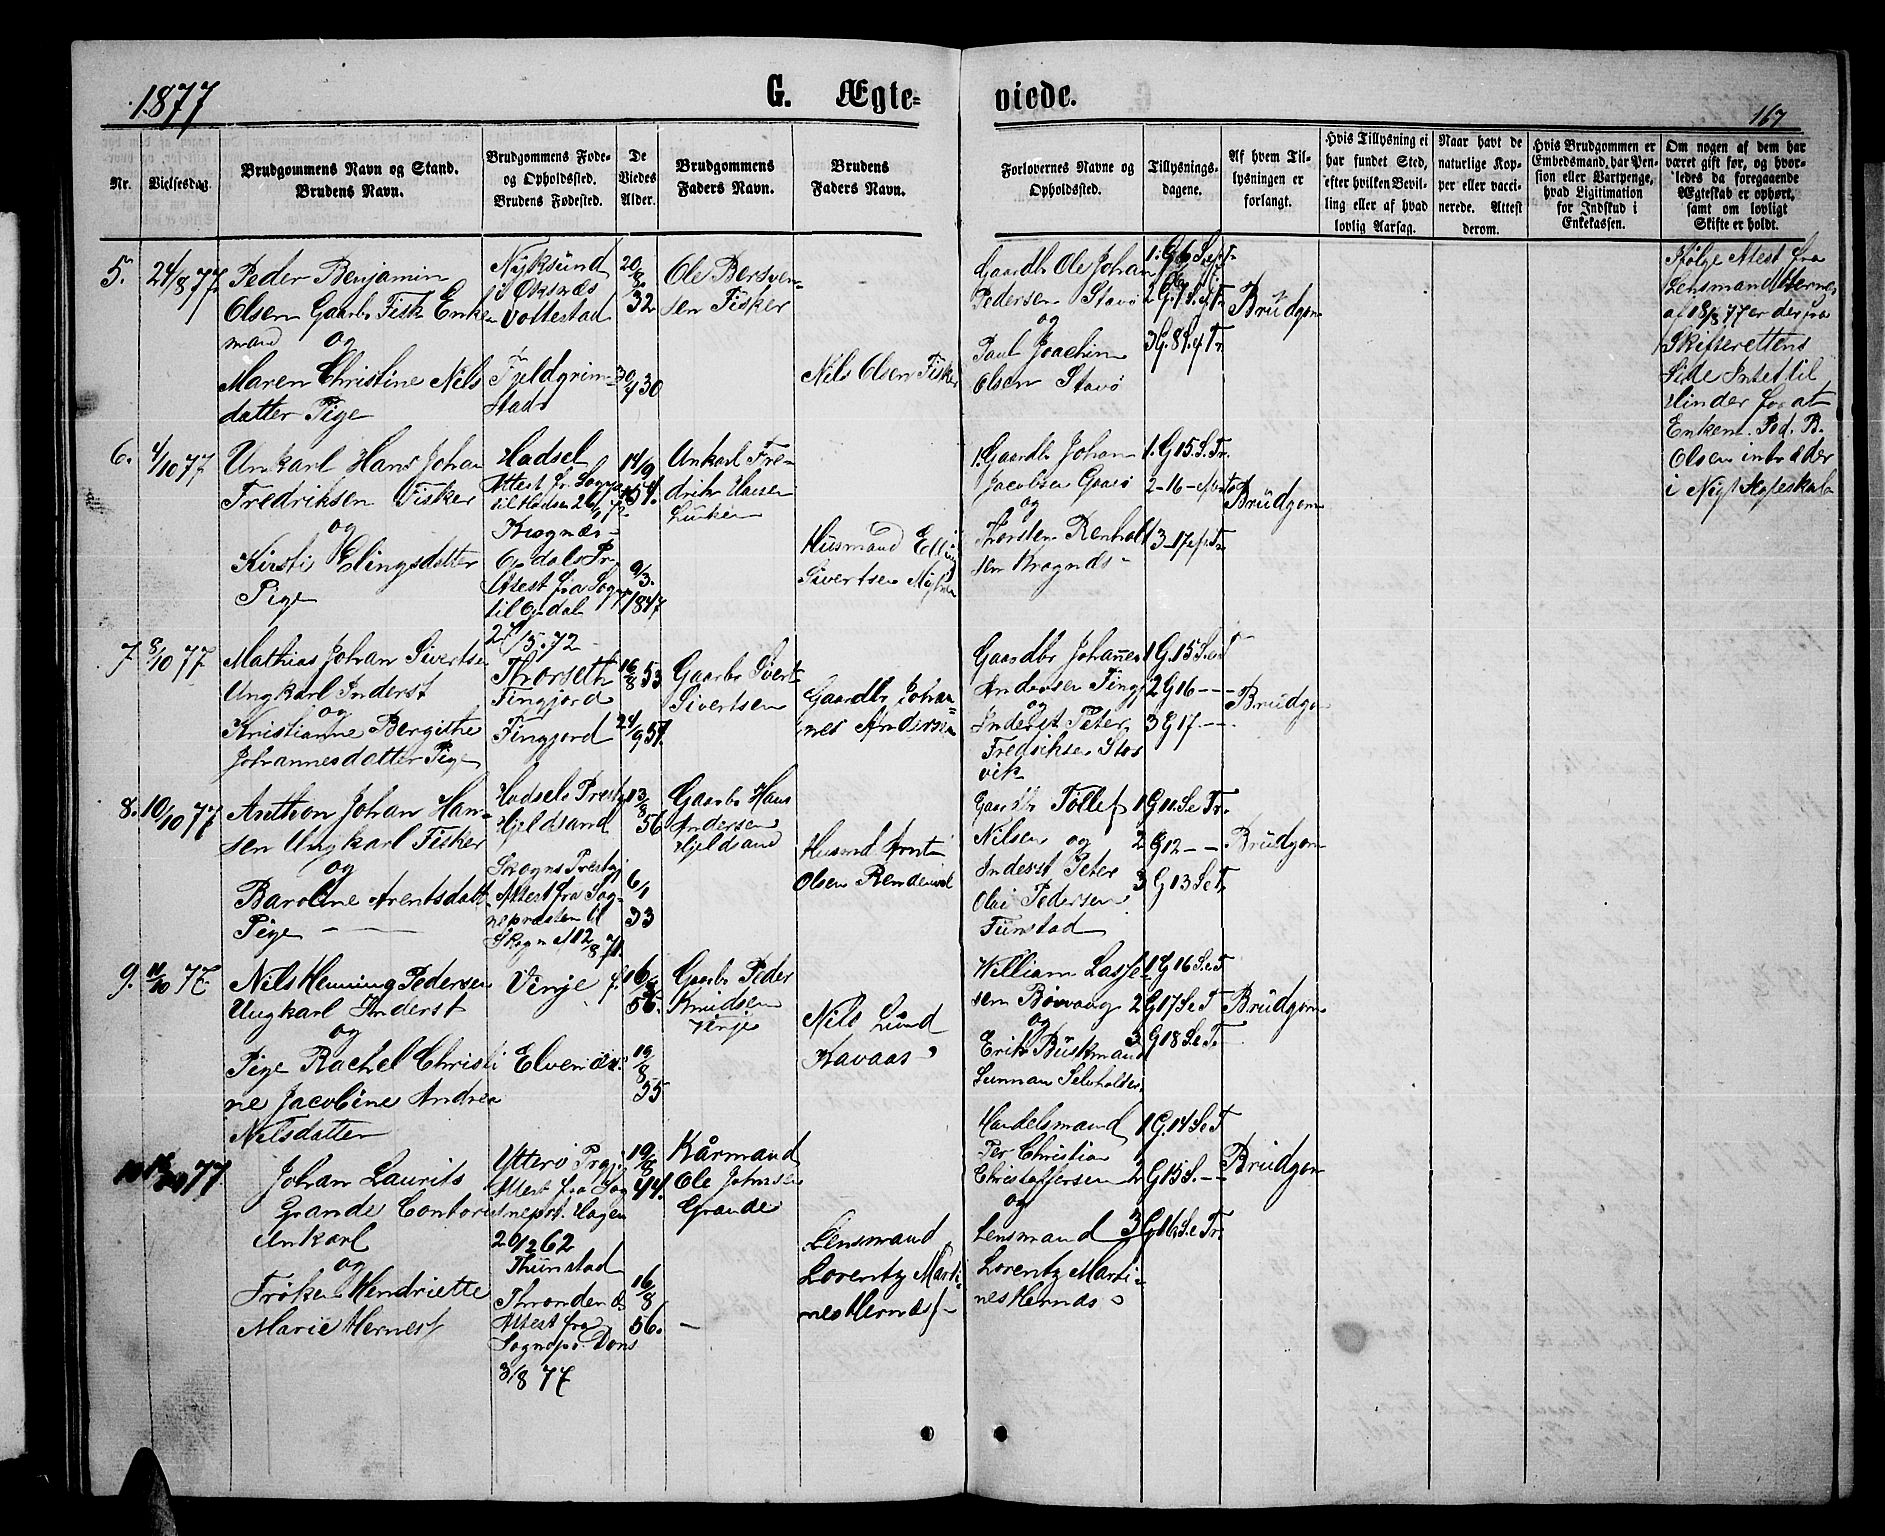 1877
G. Ægte-
viede.
167
Nr.
Vielsesdag.
Brudgommens Navn og Stand.
Brudens Navn.
Brudgommens Føde-
og Opholdssted.
Brudens Fødested.
De
Viedes
Alder.
Brudgommens
Faders Navn.
Brudens
Faders Navn.
Forlovernes Navne og
Opholdssted.
Tillysnings-
dagene.
Af hvem Til-
lysningen er
forlangt.
Hvis Tillysning ei
har fundet Sted,
efter hvilken Bevil-
ling eller af hvad
lovlig Aarsag.
Naar havt de
naturlige Kop-
per eller vacci-
nerede. Attest
derom.
Hvis Brudgommen er
Embedsmand, har Pen-
sion eller Vartpenge,
hvad Ligitimation
for Indskud i
Enkekassen.
Om nogen af dem har
været gift før, og hvor-
ledes da foregaaende
Ægteskab er ophørt,
samt om lovligt
Skifte er holdt.
5.
24/8 77.
Peder Benjamin
Olsen Gaarbr Fisk Enke
mand og
Maren Christine Nils
datter Pige
Nyksund
i Øksnæs
Vottestad
Fuldgrim-
stad
20/8
32
30/4 30
Ole Bersven-
sen Fisker
Nils Olsen Fisker
Gaardbr Ole Johan
Pedersen Stavø
og
Paul Joachim
Olsen Stavø
1. G 6 Sept
2 G. 7 S. ef Tr
3 G. 8 S. ef Tr.
Brüdgom
Ifølge Attest fra
Lensmand Hernes
af 18/8 77 er der fra
Skifterettens
Side Intet til
Hinder for at
Enkem. Ped. B.
Olsen indtræder
i Nyt Ægteskab
6.
4/10 77
Unkarl Hans Johan
Fredriksen Fisker
og
Kirsti Elingsdatter
Pige
Hadsel
Attest fr. Sogn
til Hadsen 26/
Kragnæs
Opdals Pr.
Attest fra Sogn
til Opdal
24/5.72
14/9
54.
9/3.
1847
Unkarl Fre-
drik Hansen
Husmand Elling
Sivertsen
1. Gaardbr Johan
Jacobsen Gaasø
og
Thorsten Renhol
sen Kragnæs
1. G 15. S. Tr.
2 - 16 -
3 - 17 ef. Tr.
Brüdgom
7.
8/10 77.
Mathias Johan Sivertsen
Ungkarl Inderst
og
Kristianne Bergithe
Johannesdatter Pige
Thorseth
Fingjord
Fingjord
16/8 53
24/9 54.
Gaarbr Sivert
Sivertsen
Gaardbr Johan-
nes Andersen
Gaardbr Johannes
Andersen Fingj
og
Inderst Peter
Fredriksen Stor
vik
1 G. 15 S. e T
2 G 16 - - -
3 G 17 - -
Brüdgo
8.
10/10 77
Anthon Johan Han-
sen Ungkarl Fisker
og
Baroline Arentsdatt
Pige
Hadsels Prestgj
Hjeldsand
Skogns Prestgj
Attest fra Sog-
nepræsten til
Skogn af 12/8 71.
13/8
56
6/1
33
Gaarbr Hans
Andersen
Hjeldsand
Husmd Arnt
Olsen
Gaardbr Tollef
Nilsen og
Inderst Peter
Olai Pedersen
Tünstad
1 G 10 S e Tr.
2 G 12 - -
3 G 13 S e Tr.
Brüdgom
9.
11/10 77.
Nils Henning Pedersen
Ungkarl Inderst
og
Pige Rachel Christi
ne Jacobine Andrea
Nilsdatter
Vinje
Elvenæs
16/
56.
19/8
55
Gaarbr Peder
Knudsen
Vinje
Nils Lund
Kavaas
William Lasse
sen Bövaag
og
Erik Büskmand
Gunnar
1 G 16 S. e T
2 G 17 S e T
3 G 18 S. e T
Brüdgom
10
77
Johan Laurits
Grande Contorist
Unkarl
og
Frøken Hendriette
Marie Hernes
Ytterø Prgj
Attest fra Sog
nepr. Hagen
20/12 62
Thünstad
Thronden æs
Attest fra
Sognepr. Dons
3/8 77
19/8
44.
16/8
56.
Kårmand
Ole Johnsen
Grande
Lensmand
Lorentz Marti-
nes Hernæs
Handelsmand
Per Christian
Christoffersen
og
Lensmand
Lorentz Marti-
nes Hernæs
1 G. 14 S. e T
2 G 15 S. - -
3 G 16 S. e Tr.
Brüdgom